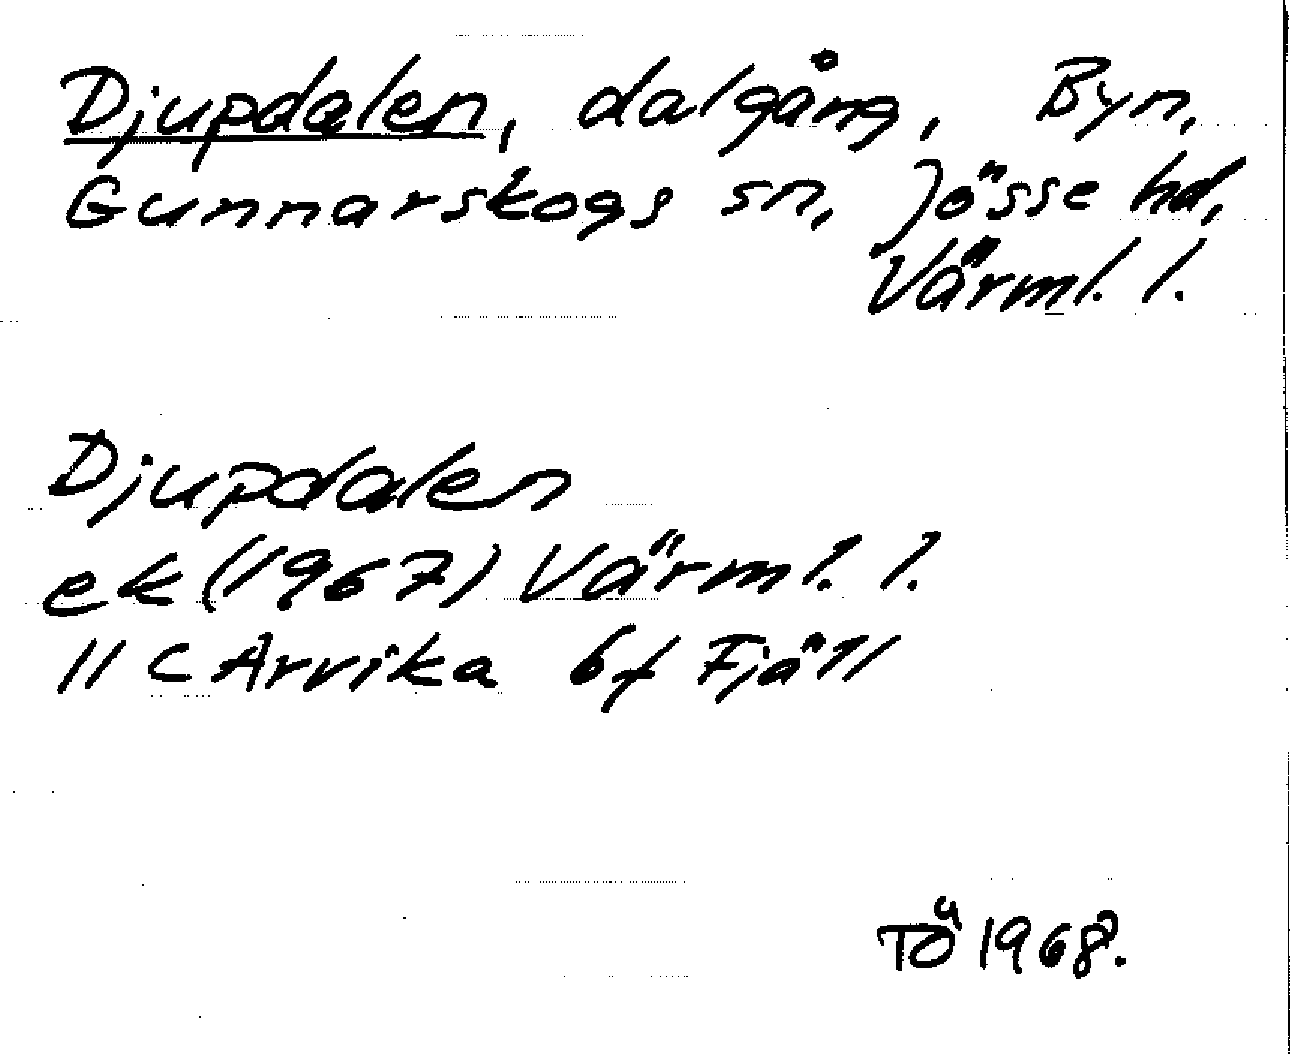 Djupdalen, dalgång, Byn,
Gunnarskogs sn, Jösse hd,
Värml. l.
Djupdalen
ek (1967) Värml. l.
11 C Arvika 6f Fjäll
TÖ 1968.